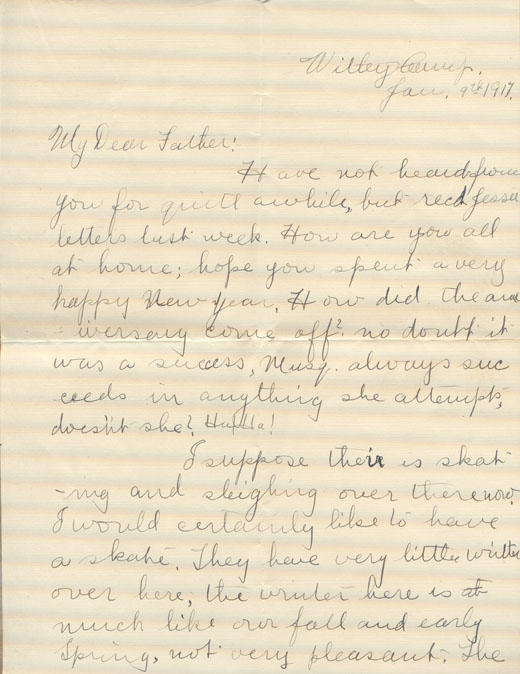 Witley Camp.
Jan. 9th 1917.
My Dear Father!
Have not heard from
you for quitt awhile, but recd Jessie
letters last week. How are you all
at home; hope you spent a very
happy New Year. How did the ann
- iversary come off? no doubt it
was a success, Musq. always suc
ceeds in anything she attempts,
doesn't she?
I suppose their is skat-
-ing and sleighing over there now.
I would certainly like to have
a skate. They have very little winter
over here, the winter here is
much like our fall and early
Spring, not very pleasant. The